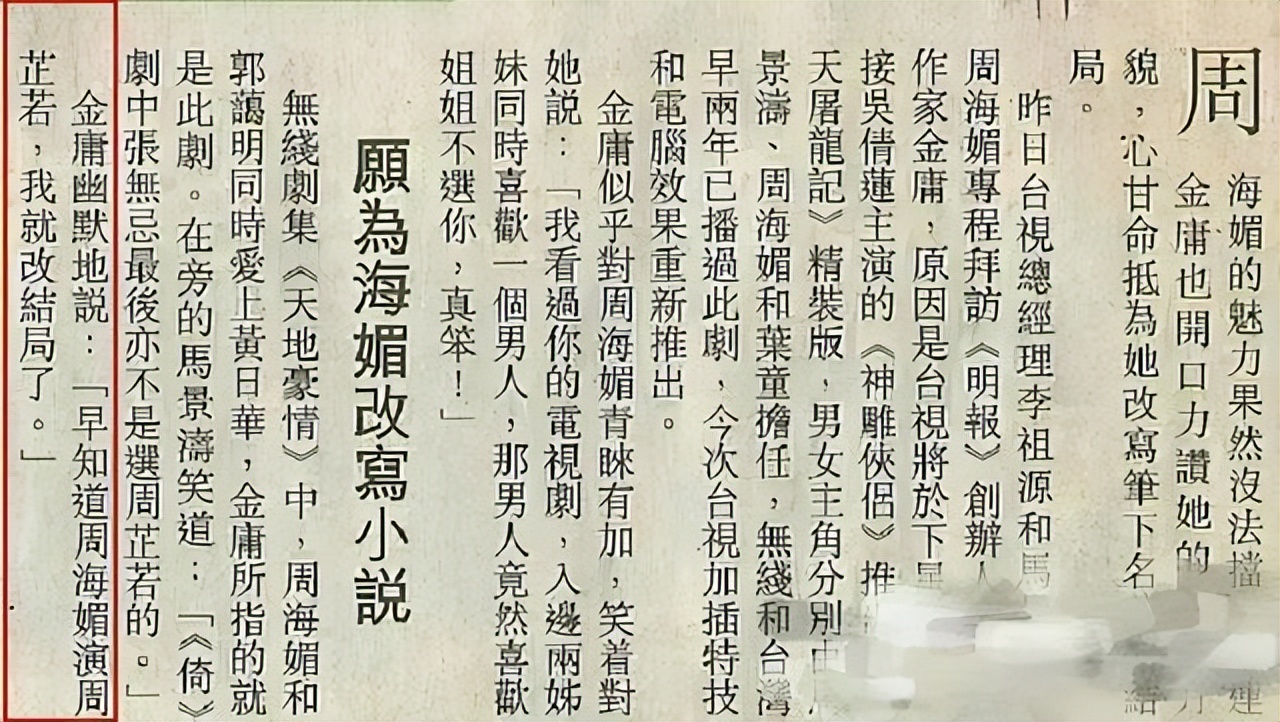 周海媚的魅力果然沒法擋連
金庸也開口力讚她的
貌，心甘命抵為她改寫筆下名結
局。
昨日台視總經理李祖源和馬
周海媚專程拜訪《明報》創辦人
作家金庸，原因是台視將於下
接吳倩蓮主演的《神雕俠侶》推
天屠龍記》精裝版，男女主角分別由
景濤、周海媚和葉童擔任，無綫和台灣
早兩年已播過此劇，今次台視加插特技
和電腦效果重新推出。
金庸似乎對周海媚青睞有加，笑着對
她説：「我看過你的電視劇，入邊兩姊
妹同時喜歡一個男人，那男人竟然喜歡
姐姐不選你，真笨！」
願為海媚改寫小説
無綫劇集《天地豪情》中，周海媚和
郭藹明同時愛上黃日華，金庸所指的就
是此劇。在旁的馬景濤笑道：「《倚》
劇中張無忌最後亦不是選周芷若的。」
金庸幽默地説：「早知道周海媚演周
芷若，我就改結局了。」